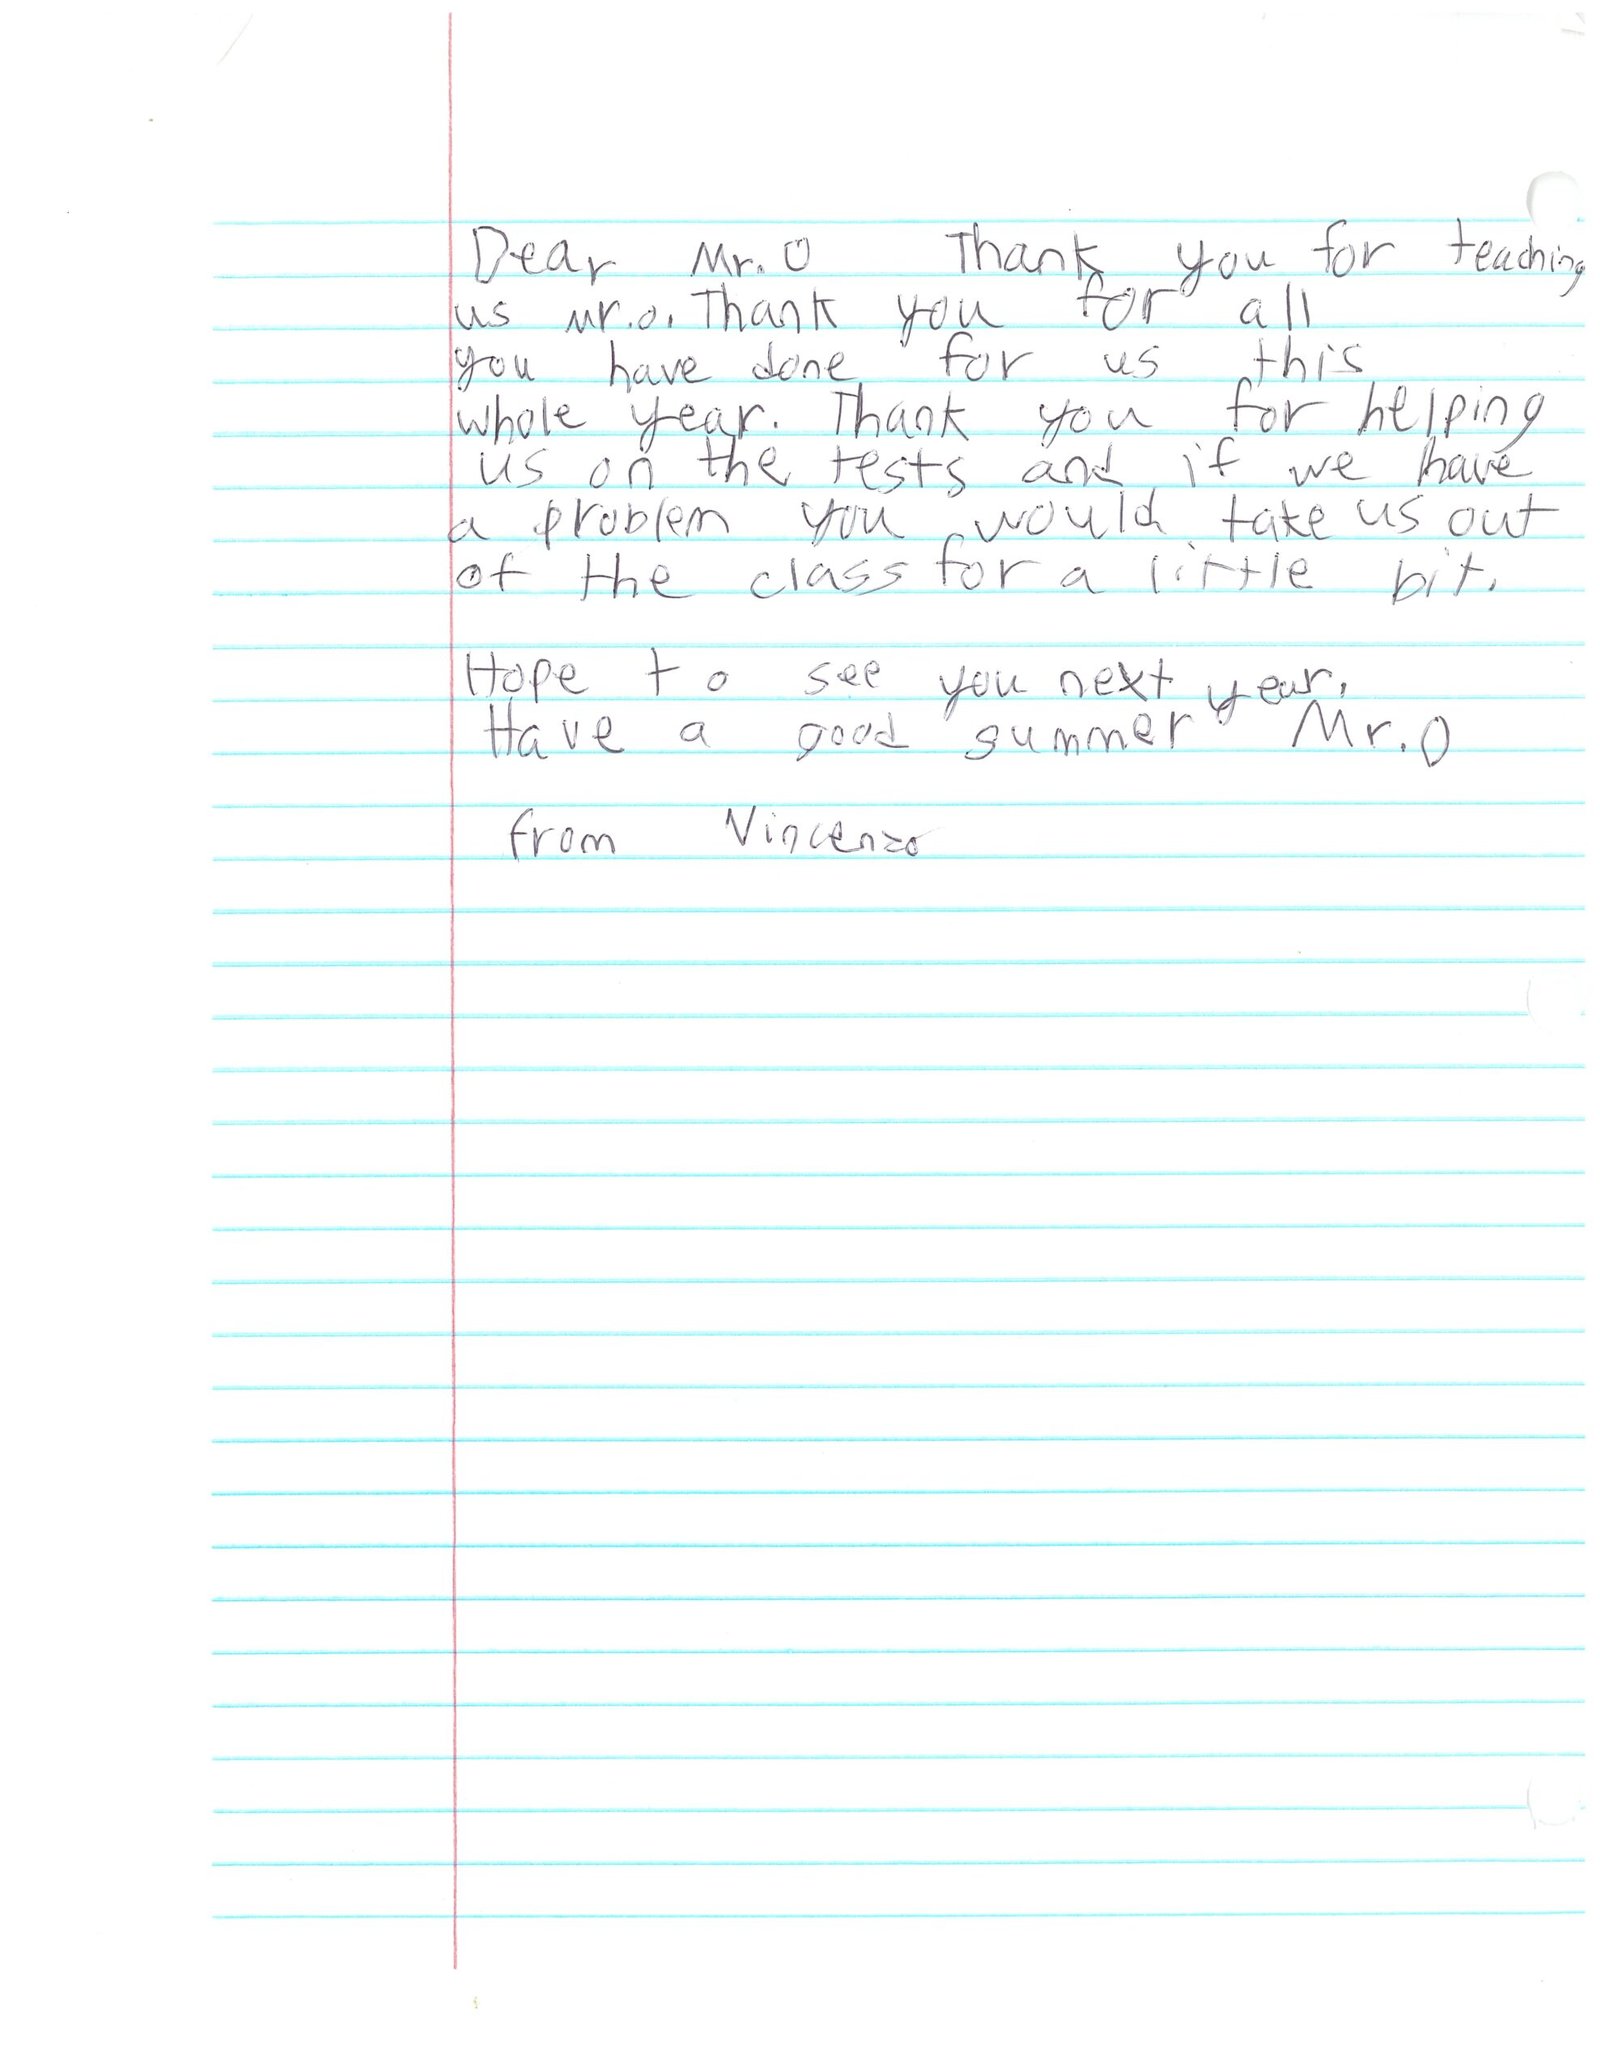 Dear Mr. O Thank you for teaching
us Mr.o. Thank you for all
you have done for us this
whole year. Thank you for helping
us on the tests and if we have
a problem you would take us out
of the class for a little bit.
Hope to see you next year.
Have a good summer Mr. O
from Vincenzo